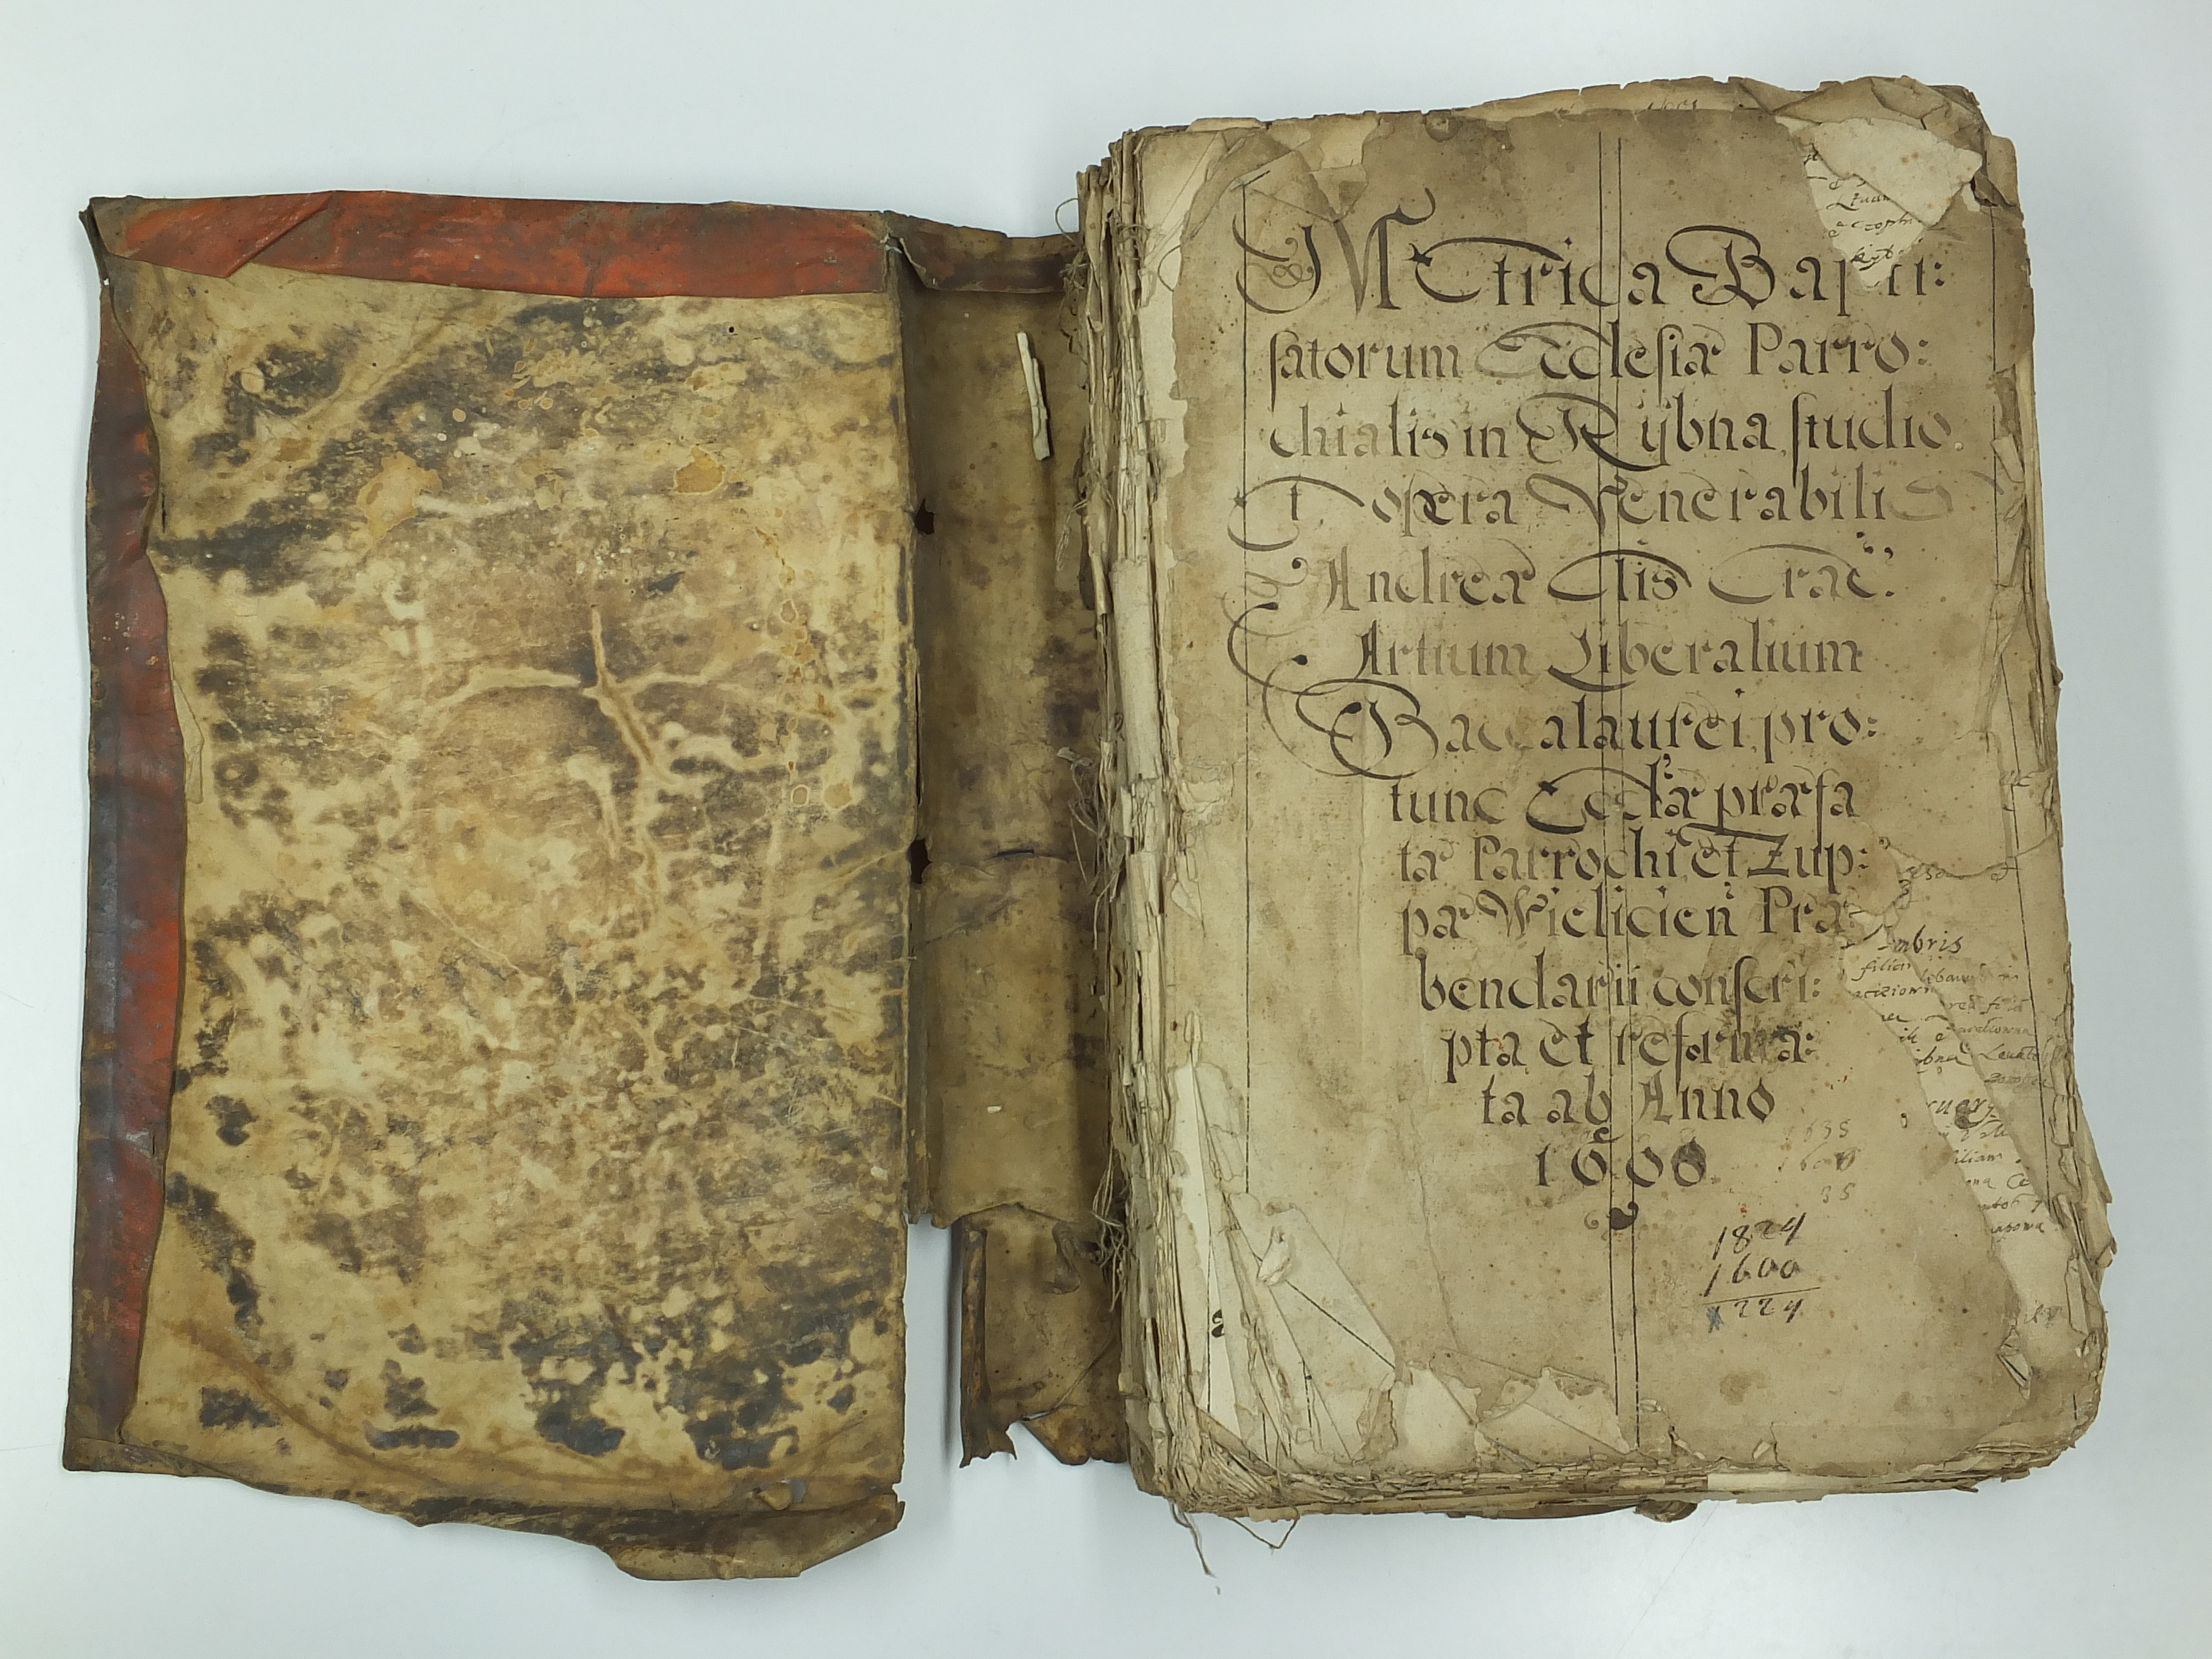 Metrica Bapti:
satorum Ecclesiæ Parro:
chialis in Rÿbna, studio.
Et opera Venerabilis
Andreæ Elis Crac:
Artium Liberalium
Baccalaurei, pro:
tunc Eccłæ præfa
tæ Parrochi, et Zup:
pæ Wielicien̄ Præ
bendarii conscri:
pta et reforma:
ta ab Anno
1600.
1635
1600
35
1824
1600
1224
mbris